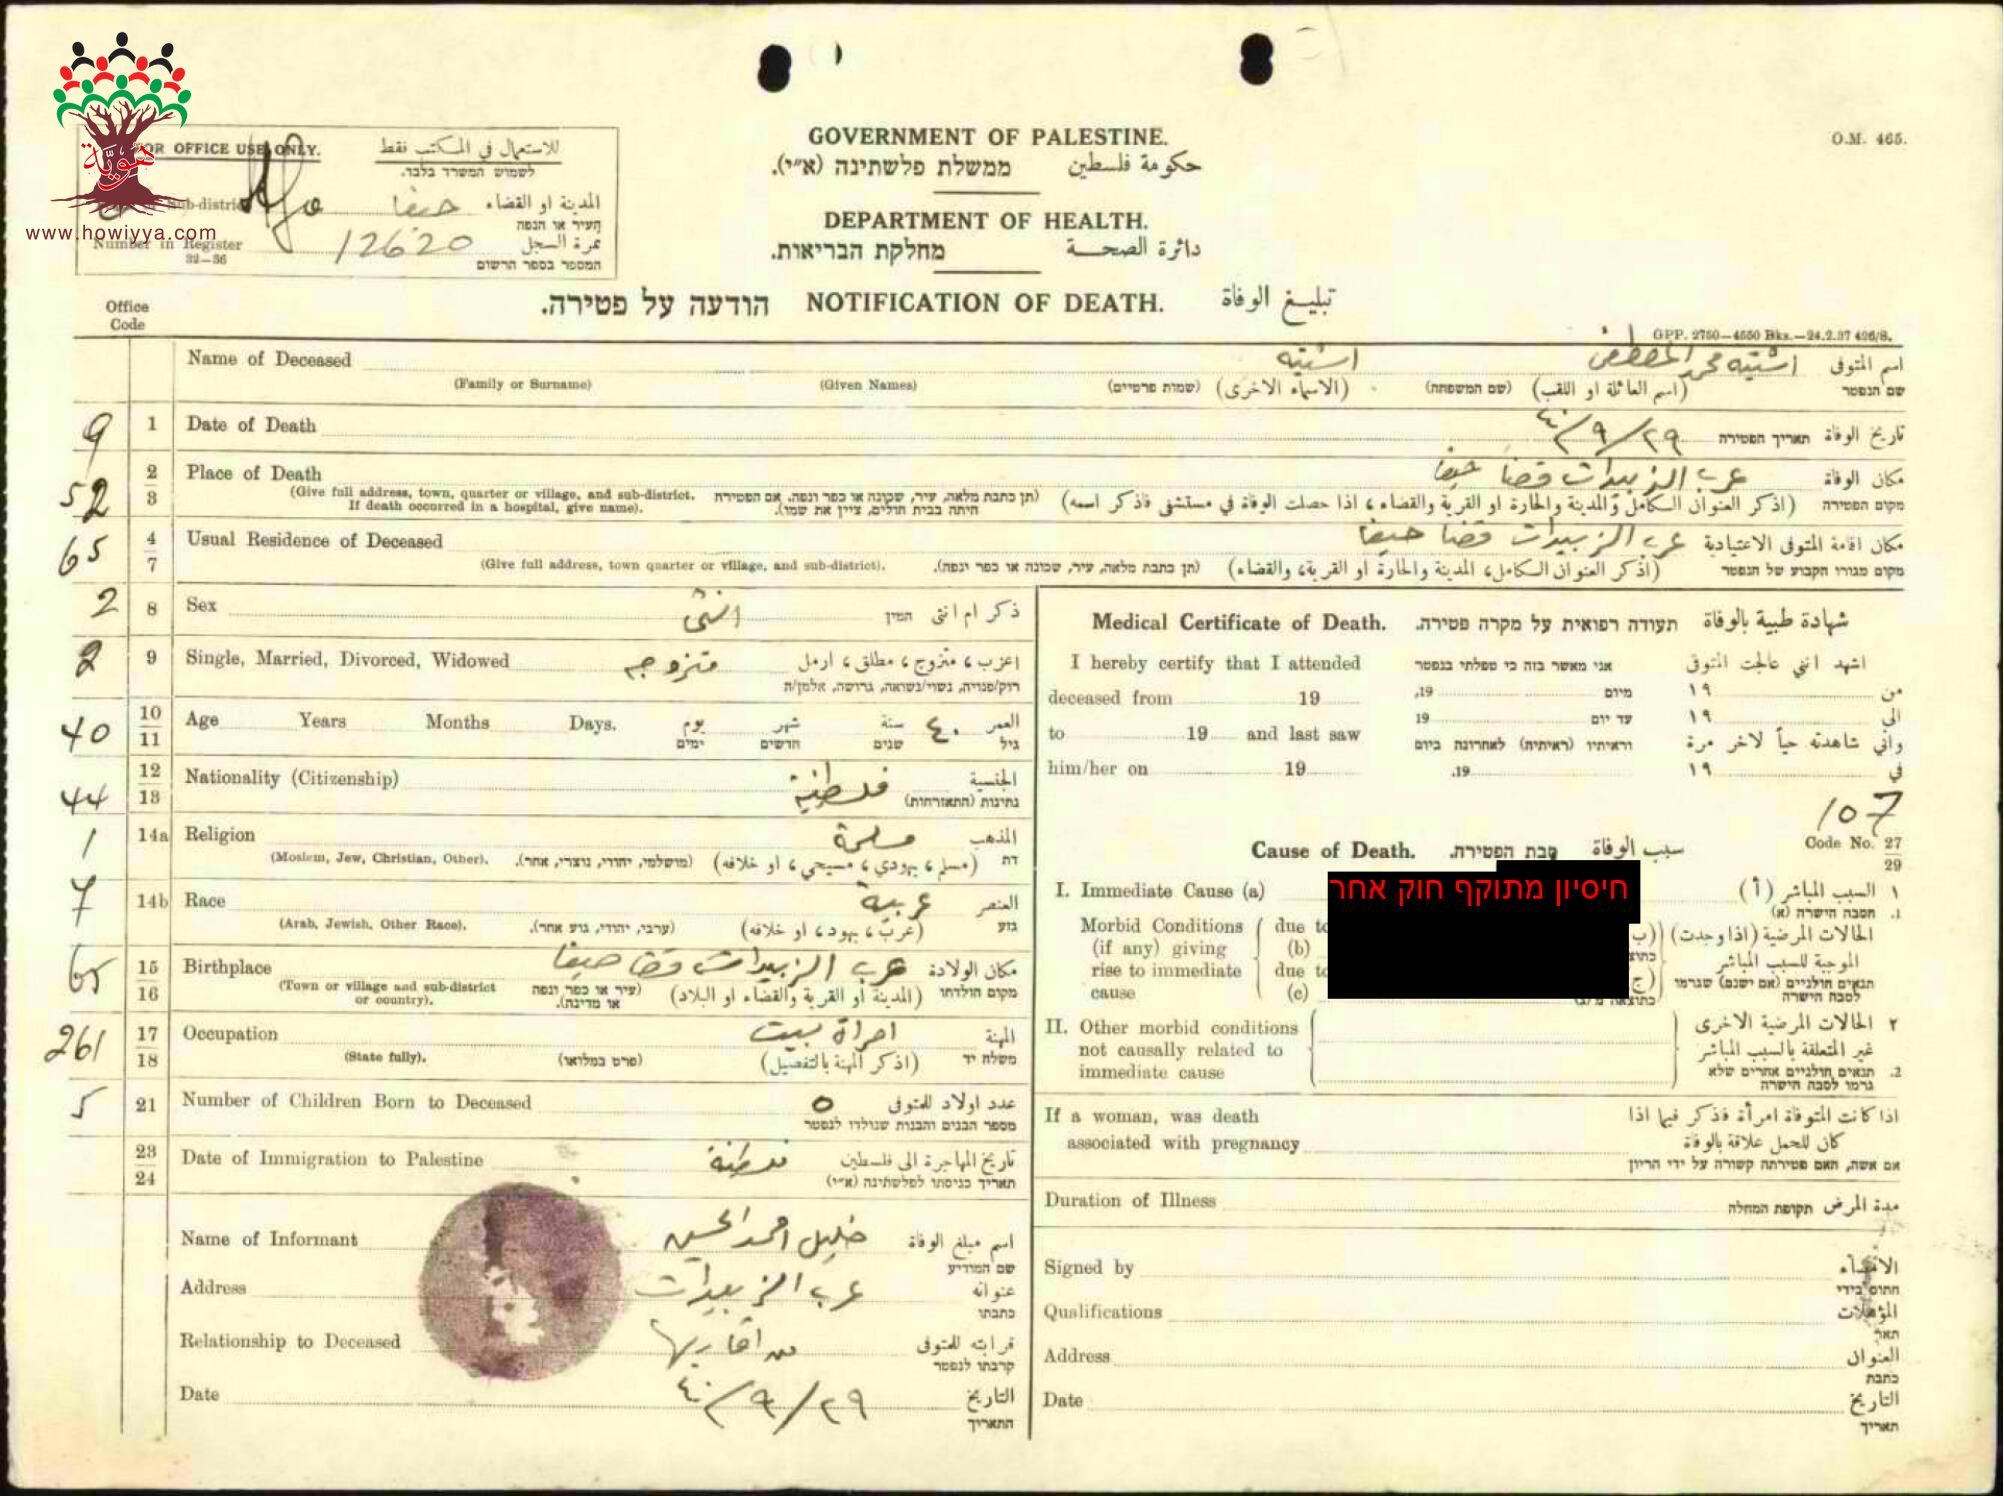 هويّة
www.howiyya.com
FOR OFFICE USE ONLY. للاستعمال في المكتب نقط
לשמוש המשרד בלבד.
Sub-district حيفا المدينة او القضاء
העיר או הנפה
Number in Register 12620 نمرة السجل
32—36 המספר בספר הרשום
O.M. 465.
GOVERNMENT OF PALESTINE.
ממשלת פלשתינה (א״י). حكومة فلسطين
DEPARTMENT OF HEALTH.
מחלקת הבריאות. دائرة الصحة
הודעה על פטירה. NOTIFICATION OF DEATH. تبليغ الوفاة
Office
Code
GPP. 2750—4550 Bks.—24.2.37 426/8.
Name of Deceased اشتيه اشتيه محمد المصطفى اسم المتوفى
(Family or Surname) (Given Names) (שמות פרטיים) (الاسماء الاخرى) (שם המשפחה) (اسم العائلة او اللقب) שם הנפטר
9 1 Date of Death ٢٩/٩/٤٠ תאריך הפטירה تاريخ الوفاة
52 2/3 Place of Death عرب الزبيدات قضا حيفا مكان الوفاة
(Give full address, town, quarter or village, and sub-district. If death occurred in a hospital, give name). (תן כתבת מלאה, עיר, שכונה או כפר ונפה. אם הפטירה היתה בבית חולים, ציין את שמו). (اذكر العنوان الكامل والمدينة والحارة او القرية والقضاء، اذا حصلت الوفاة في مستشفى فاذكر اسمه) מקום הפטירה
65 4/7 Usual Residence of Deceased عرب الزبيدات قضا حيفا مكان اقامة المتوفى الاعتيادية
(Give full address, town quarter or village, and sub-district). (תן כתבת מלאה, עיר, שכונה או כפר ונפה). (اذكر العنوان الكامل، المدينة والحارة او القرية، والقضاء) מקום מגורו הקבוע של הנפטר
2 8 Sex انثى המין ذكر ام انثى
2 9 Single, Married, Divorced, Widowed متزوجه اعزب، متزوج، مطلق، ارمل
רוק/פנויה, נשוי/נשואה, גרושה, אלמן/ה
40 10/11 Age Years Months Days. يوم شهر سنة ٤٠ العمر
ימים חדשים שנים גיל
44 12/13 Nationality (Citizenship) فلسطنيه الجنسية
נתינות (התאזרחות)
1 14a Religion مسلمة المذهب
(Moslem, Jew, Christian, Other). (מושלמי, יהודי, נוצרי, אחר). (مسلم، يهودي، مسيحي، او خلافه) דת
7 14b Race عربية العنصر
(Arab, Jewish, Other Race). (ערבי, יהודי, גוע אחר). (عرب، يهود، او خلافه) גוע
65 15/16 Birthplace عرب الزبيدات قضا حيفا مكان الولادة
(Town or village and sub-district or country). (עיר או כפר ונפה או מדינה). (المدينة او القرية والقضاء او البلاد) מקום הולדתו
261 17/18 Occupation امراة بيت المهنة
(State fully). (פרט במלואו) (اذكر المهنة بالتفصيل) משלח יד
5 21 Number of Children Born to Deceased ٥ عدد اولاد المتوفى
מספר הבנים והבנות שנולדו לנפטר
23/24 Date of Immigration to Palestine تاريخ المهاجرة الى فلسطين
תאריך כניסתו לפלשתינה (א״י)
Name of Informant خليل احمد الحسين اسم مبلغ الوفاة
שם המודיע
Address عرب الزبيدات عنوانه
כתבתו
Relationship to Deceased من اقاربها قرابته للمتوفى
קרבתו לנפטר
Date ٢٩/٩/٤٠ التاريخ
התאריך
Medical Certificate of Death. תעודה רפואית על מקרה פטירה. شهادة طبية بالوفاة
I hereby certify that I attended אני מאשר בזה כי טפלתי בנפטר اشهد انني عالجت المتوفى
deceased from 19 מיום 19, من ١٩
to 19 and last saw עד יום 19 الى ١٩
him/her on 19 וראיתיו (ראיתיה) לאחרונה ביום 19. واني شاهدته حياً لاخر مرة في ١٩
107
Code No. 27/29
Cause of Death. סבת הפטירה. سبب الوفاة
I. Immediate Cause (a) חיסיון מתוקף חוק אחר ١ السبب المباشر (أ)
1. הסבה הישרה (א)
Morbid Conditions due to الحالات المرضية (اذا وجدت) (ب
(if any) giving (b) الموجبة للسبب المباشر
rise to immediate due to תנאים חולניים (אם ישנם) שגרמו (ج
cause (c) לסבה הישרה
II. Other morbid conditions ٢ الحالات المرضية الاخرى
not causally related to غير المتعلقة بالسبب المباشر
immediate cause 2. תנאים חולניים אחרים שלא גרמו לסבה הישרה
If a woman, was death اذا كانت المتوفاة امرأة فذكر فيما اذا
associated with pregnancy كان للحمل علاقة بالوفاة
אם אשה, האם פטירתה קשורה על ידי הריון
Duration of Illness תקופת המחלה مدة المرض
Signed by الامضاء
חתום בידי
Qualifications المؤهلات
תאר
Address العنوان
כתבת
Date التاريخ
תאריך